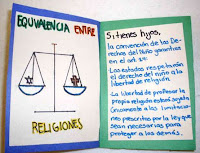 EQUIVALENCIA ENTRE
RELIGIONES
Si tienes hijos,
la convención de los De-
rechos del Niño garantiza
en el art. 14:
Los estados respetarán
el derecho del niño a la
libertad de religión.
La libertad de profesar la
propia religión estará sujeta
únicamente a las limitacio-
nes prescritas por la ley que
sean necesarias para
proteger a los demás.